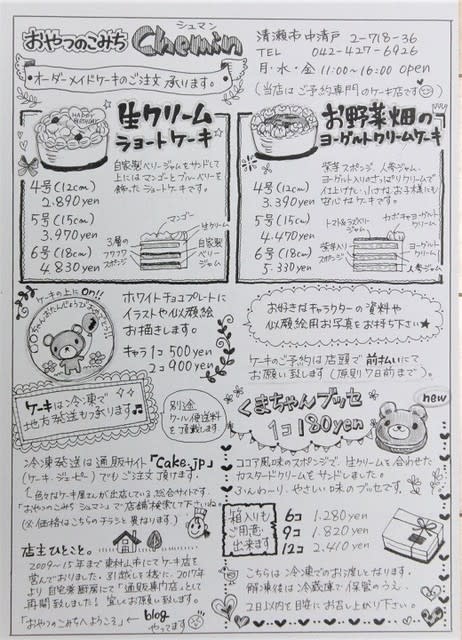 おやつのこみち
シュマン
Chemin
清瀬市中清戸 2-718-36
TEL 042-427-6926
月・水・金 11:00〜16:00 open
(当店は ご予約専門のケーキ店です)
オーダーメイドケーキのご注文 承ります。
HAPPY BIRTHDAY
生クリーム
ショートケーキ
4号(12cm)
2.890yen
5号(15cm)
3.970yen
6号(18cm)
4.830yen
自家製ベリージャムをサンドして
上にはマンゴーとブルーベリーを
飾ったショートケーキです。
マンゴー
生クリーム
3層の
フワフワ
スポンジ
自家製
ベリー
ジャム
お野菜畑の
ヨーグルトクリームケーキ
4号(12cm)
3.390yen
5号(15cm)
4.470yen
6号(18cm)
5.330yen
紫芋スポンジ、人参ジャム、
ヨーグルト入りのさっぱりクリームで
仕上げたい、小さなお子様にも
安心なケーキです。
トマト&ラズベリー
ジャム
カボチャヨーグルト
クリーム
紫芋入り
スポンジ
ヨーグルト
クリーム
人参ジャム
ケーキの上にon!!
ホワイトチョコプレートに
イラストや似顔絵
お描きします。
キャラ1コ 500yen
2コ 900yen
お好きなキャラクターの資料や
似顔絵用お写真をお持ち下さい★
ケーキのご予約は店頭で前払いにて
お願い致します(原則7日前まで)。
ケーキは冷凍で
地方発送も承ります♫
別途
クール便送料
を頂戴します
くまちゃんブッセ
1コ 180yen
new
冷凍発送は通販サイト「Cake.jp」
(ケーキ.ジェーピー)でもご注文頂けます。
(色々なケーキ屋さんが出店している総合サイトです。
「おやつのこみち シュマン」で店舗検索して下さいね。
(※価格はこちらのチラシと異なります)
ココア風味のスポンジで、生クリームを合わせた
カスタードクリームをサンドしました。
ふんわ〜り、やさしい味のブッセです。
箱入りも
ご用意
出来ます
6コ 1.280yen
9コ 1.820yen
12コ 2.410yen
店主ひとこと。
2009〜15年まで東村山市にてケーキ店を
営んでおりました。引越しを経て2017年
より自宅兼厨房にて「通販専門店」として
再開致しました!宜しくお願い致します。
「おやつのこみちへようこそ」← blog
やってます
こちらは冷凍でのお渡しとなります。
解凍後は冷蔵庫で保管のうえ、
2日以内を目安にお召し上がり下さい。